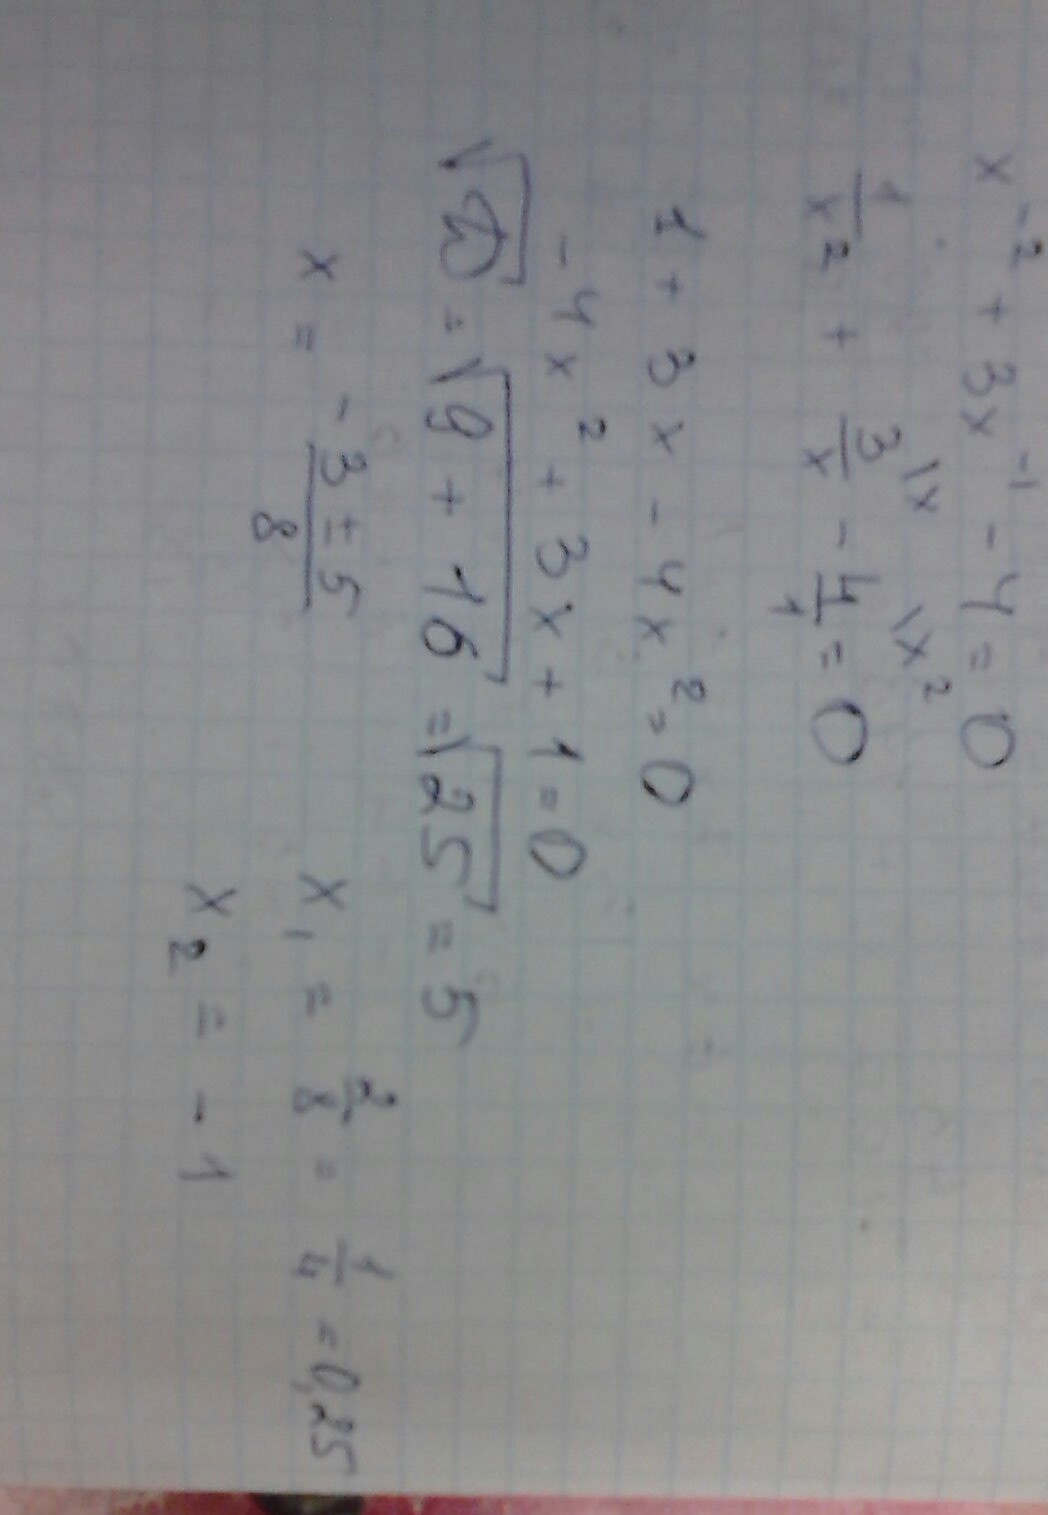 x⁻² + 3x⁻¹ - 4 = 0
1/x² + 3/x \x - 4/1 \x² = 0
1 + 3x - 4x² = 0
-4x² + 3x + 1 = 0
√D = √9 + 16 = √25 = 5
x = -3 ± 5/8 x₁ = 2/8 = 1/4 = 0,25
x₂ = -1